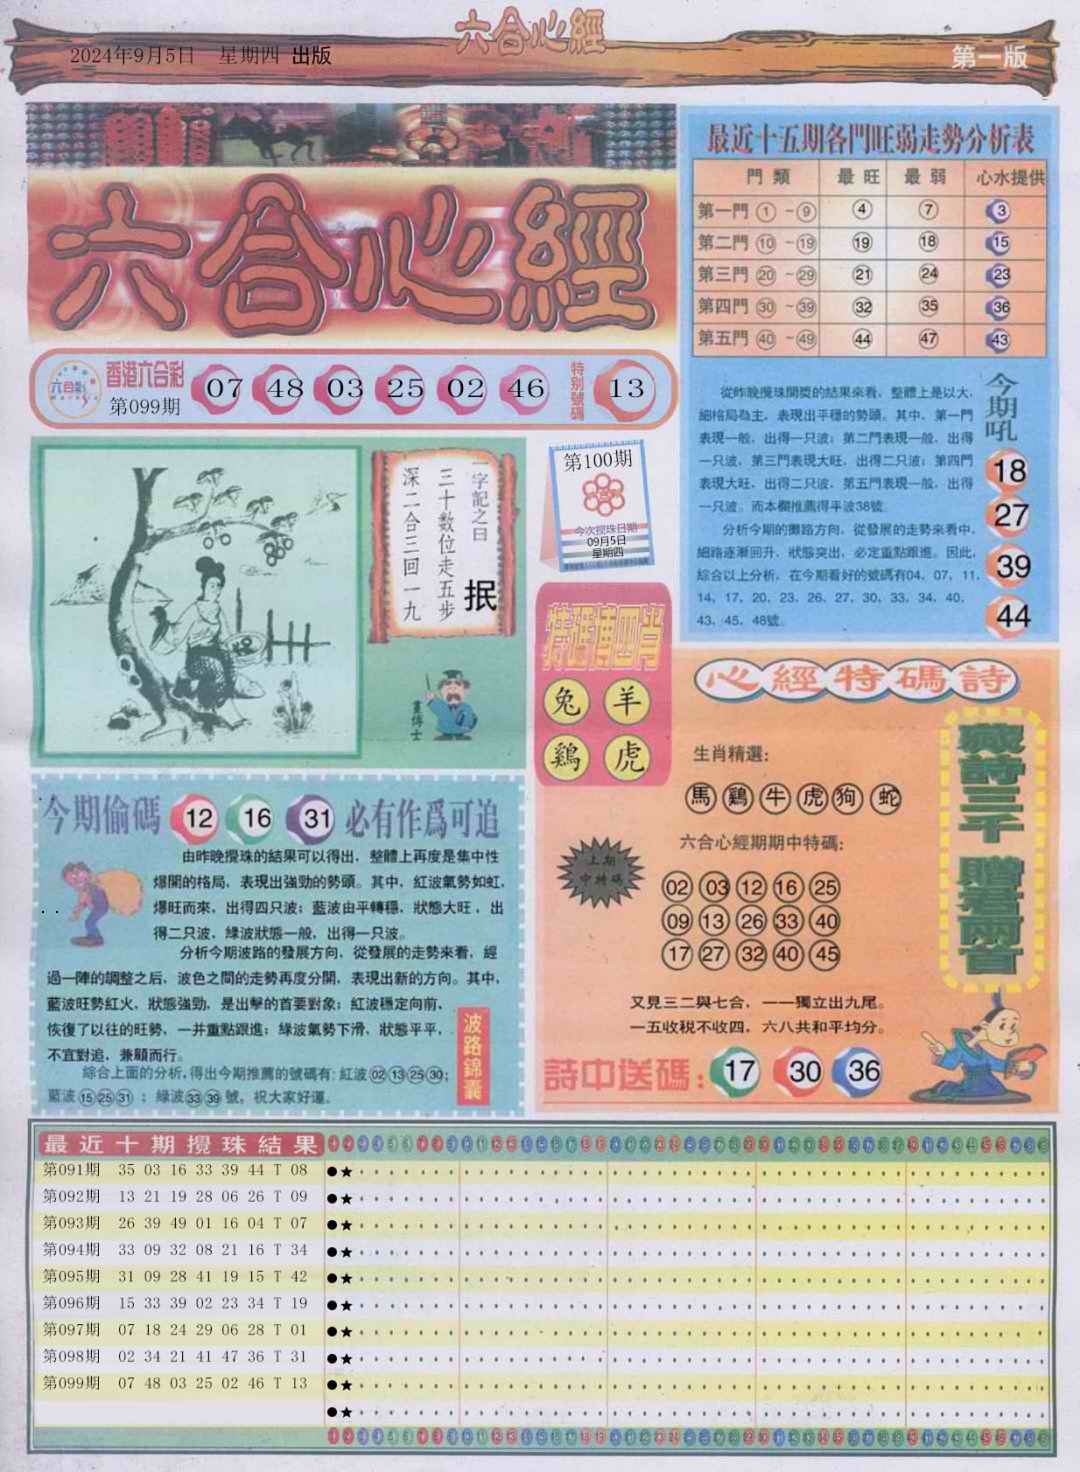 六合心經
2024年9月5日 星期四 出版
第一版
六合心經
香港六合彩
第099期
07 48 03 25 02 46
特别號碼
13
最近十五期各門旺弱走勢分析表
門類 最旺 最弱 心水提供
第一門 ①~⑨ 4 7 3
第二門 ⑩~⑲ 19 18 15
第三門 ⑳~㉙ 21 24 23
第四門 ㉚~㊴ 32 35 36
第五門 ㊵~㊾ 44 47 43
從昨晚攪珠開獎的結果來看，整體上是以大、
細格局為主，表現出平穩的勢頭。其中，第一門
表現一般，出得一只波；第二門表現一般，出得
一只波，第三門表現大旺，出得二只波；第四門
表現大旺，出得二只波，第五門表現一般，出得
一只波。而本欄推薦得平波38號。
分析今期的攤路方向，從發展的走勢來看中，
細路逐漸回升，狀態突出，必定重點跟進。因此，
綜合以上分析，在今期看好的號碼有04、07、11、
14、17、20、23、26、27、30、33、34、40、
43、45、48號。
今期吼
18
27
39
44
一字記之曰
抿
三十数位走五步
深二合三回一九
畫博士
第100期
今次攪珠日期
09月5日
星期四
特碼博四肖
兔 羊
鷄 虎
心經特碼詩
生肖精選：
馬 鷄 牛 虎 狗 蛇
六合心經期期中特碼：
上期
中特碼
02 03 12 16 25
09 13 26 33 40
17 27 32 40 45
又見三二與七合，一一獨立出九尾。
一五收税不收四，六八共和平均分。
詩中送碼：17 30 36
藏詩三千 贈君兩首
今期偷碼 12 16 31 必有作爲可追
由昨晚攪珠的結果可以得出，整體上再度是集中性
爆開的格局，表現出強勁的勢頭。其中，紅波氣勢如虹，
爆旺而來，出得四只波；藍波由平轉穩，狀態大旺，出
得二只波，綠波狀態一般，出得一只波。
分析今期波路的發展方向，從發展的走勢來看，經
過一陣的調整之后，波色之間的走勢再度分開，表現出新的方向。其中，
藍波旺勢紅火，狀態強勁，是出擊的首要對象；紅波穩定向前，
恢復了以往的旺勢，一并重點跟進；綠波氣勢下滑，狀態平平，
不宜對追，兼顧而行。
綜合上面的分析，得出今期推薦的號碼有：紅波02 13 25 30；
藍波15 25 31；綠波33 39 號。祝大家好運。
波路錦囊
最近十期攪珠結果
第091期 35 03 16 33 39 44 T 08
第092期 13 21 19 28 06 26 T 09
第093期 26 39 49 01 16 04 T 07
第094期 33 09 32 08 21 16 T 34
第095期 31 09 28 41 19 15 T 42
第096期 15 33 39 02 23 34 T 19
第097期 07 18 24 29 06 28 T 01
第098期 02 34 21 41 47 36 T 31
第099期 07 48 03 25 02 46 T 13